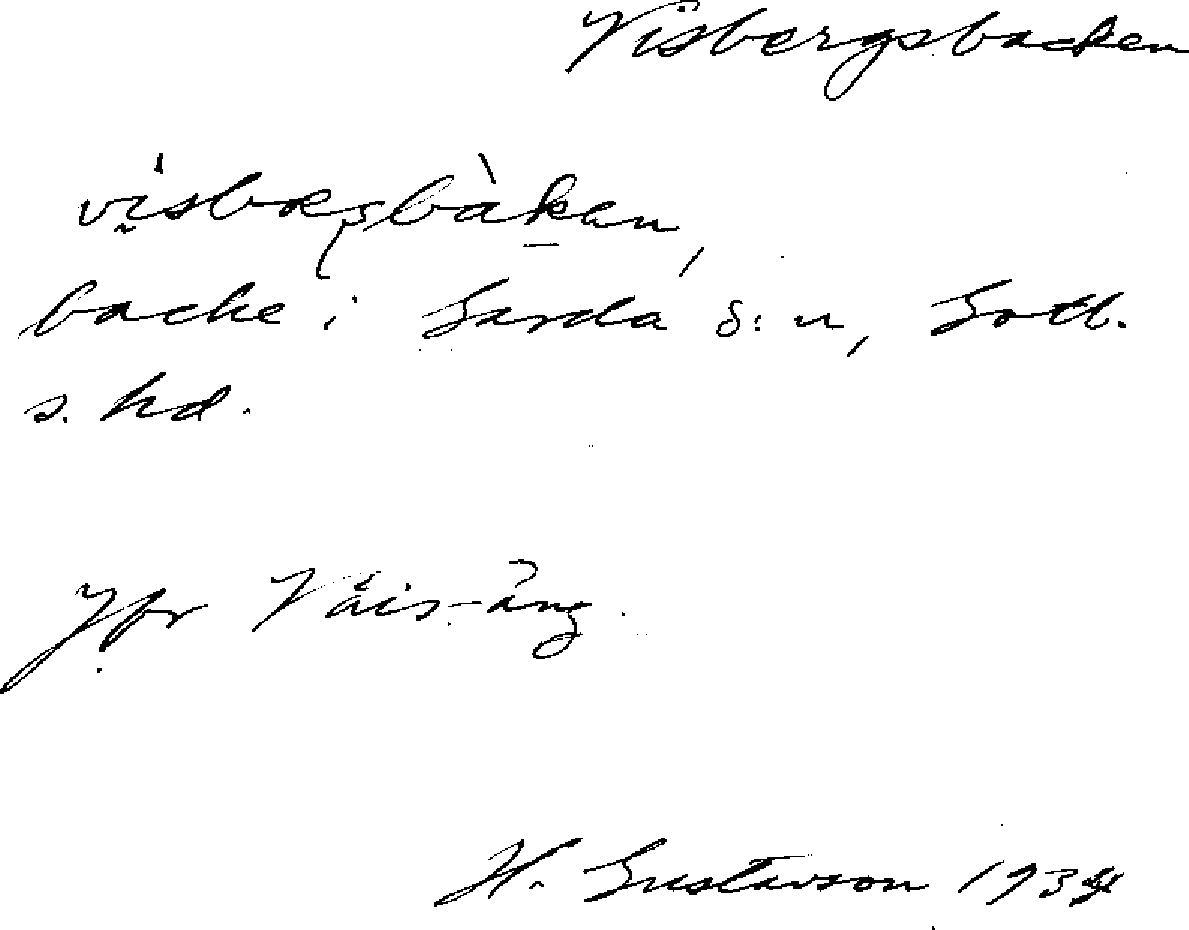 Visbergsbacken
backe i Garda s:n, Gotl.
s. hd.
Jfr Väis-äng.
H. Gustavson 1934